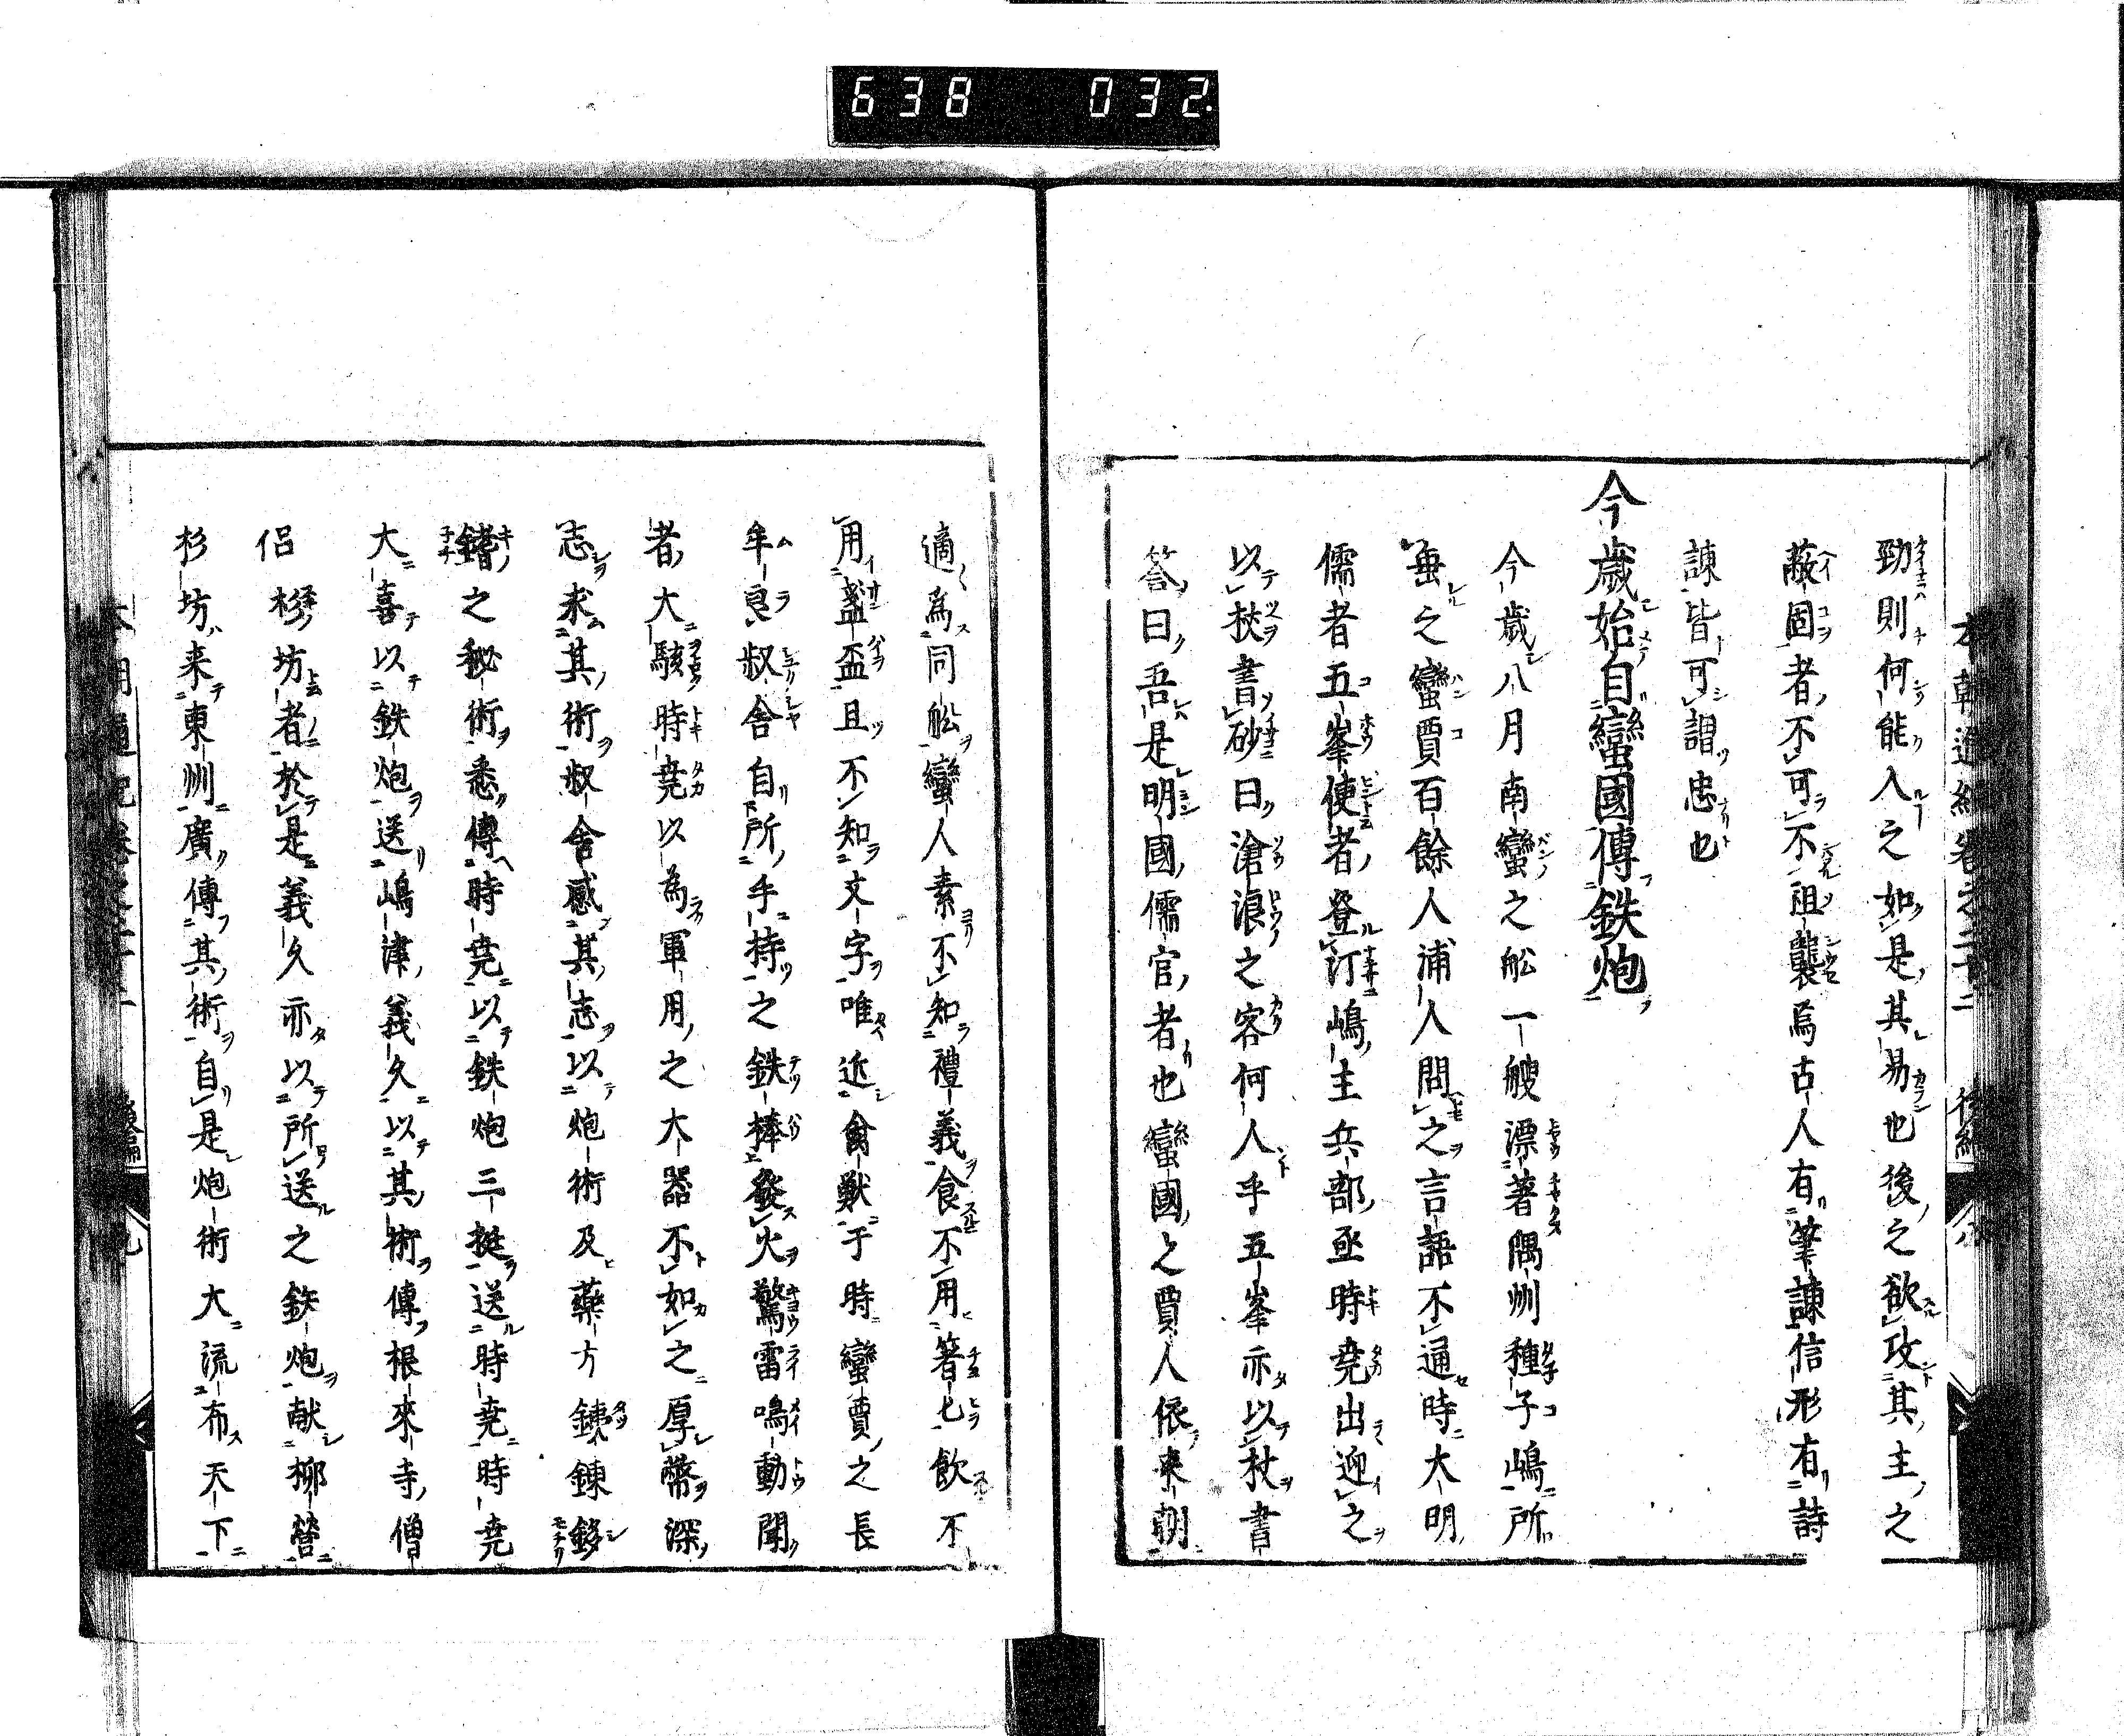 638 032
本朝通紀卷之二十二 後編 八
勁則何能入之如是其易也後之欲攻其主之
蔽固者不可不祖襲焉古人有筆諫信形有詩
諫皆可謂忠也
今歲始自蠻國傳鉄炮
今歲八月南蠻之舩一艘漂著隅州種子嶋所
乗之蠻賈百餘人浦人問之言語不通時大明
儒者五峯使者登汀嶋主兵部丞時堯出迎之
以杖書砂曰滄浪之客何人乎五峯亦以杖書
答曰吾是明國儒官者也蠻國之賈人依來朝
適為同舩蠻人素不知禮義食不用箸匕飲不
用盞盃且不知文字唯近禽獣于時蠻賈之長
牟良叔舎自所手持之鉄棒發火驚雷鳴動聞
者大駭時堯以為軍用之大器不如之厚幣深
志求其術叔舎感其志以炮術及藥方銕錬
之秘術悉傳時堯以鉄炮三挺送時堯時堯
大喜以鉄炮送嶋津義久以其術傳根來寺僧
侶杉坊者於是義久亦以所送之鉄炮献柳營
杉坊來東州廣傳其術自是炮術大流布天下